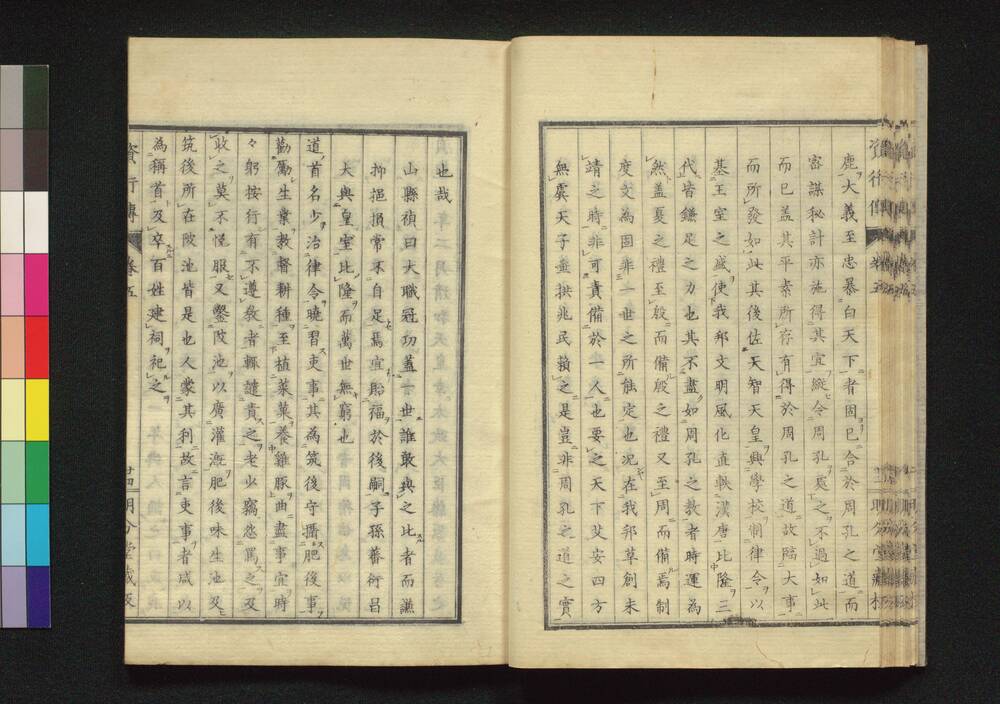 鹿大義至忠暴白天下者固已合於周孔之道而
密謀秘計亦施得其宜縱令周孔處之不過如此
而已蓋其平素所存有得於周孔之道故臨大事
而所發如此其後佐天智天皇興學校制律令以
基王室之盛使我邦文明風化直與漢唐比隆三
代皆鎌足之力也其不盡如周孔之教者時運為
然蓋夏之禮至殷而備殷之禮又至周而備焉制
度文為固非一世之所能定也况在我邦草創未
靖之時非可責備於一人也要之天下乂安四方
無虞天子垂拱兆民賴之是豈非周孔之道之實
也哉
山縣禎曰大職冠功蓋一世誰敢與之比者而謙
抑挹損常不自足焉宜貽福於後嗣子孫蕃衍昌
大與皇室比隆而萬世無窮也
道首名少治律令曉習吏事其為筑後守攝肥後事
勸勵生業教督耕種至植菜菓養雞豚曲盡事宜時
々躬按行有不遵教者輒譴責之老少竊怨罵之及
收之莫不悅服又鑿陂池以廣灌漑肥後味生池及
筑後所在陂池皆是也人蒙其利故言吏事者咸以
為稱首及卒百姓建祠祀之
資行傳 卷五 廿四 明分堂藏板